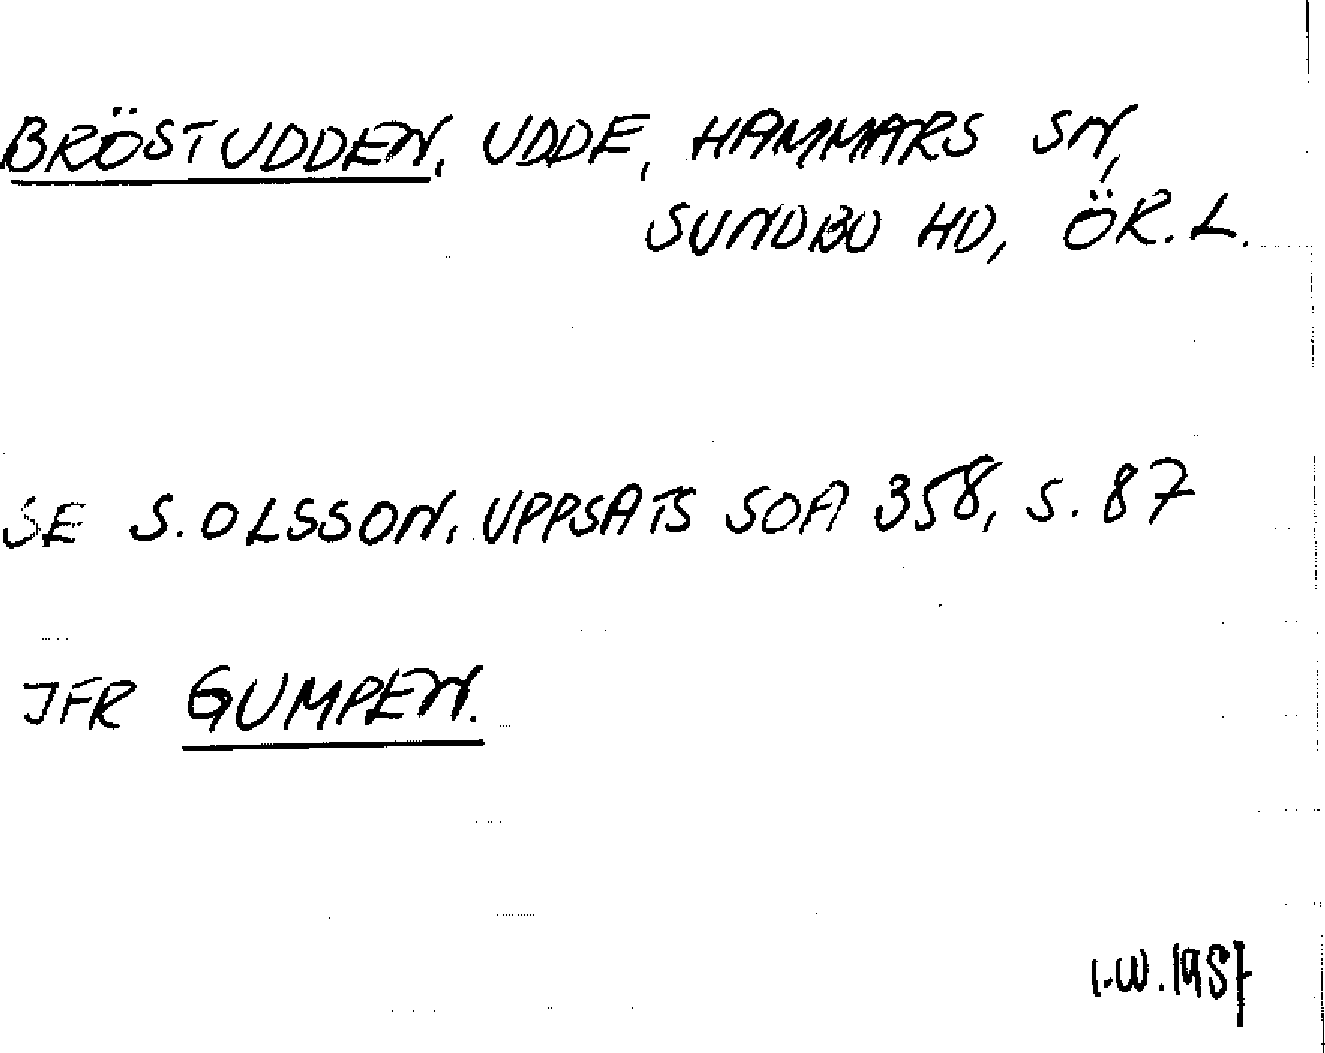 BRÖSTUDDEN, UDDE, HAMMARS SN,
SUNDBO HD, ÖR. L.
SE S. OLSSON, UPPSATS SOA 358, S. 87
JFR GUMPEN.
I.W. 1987